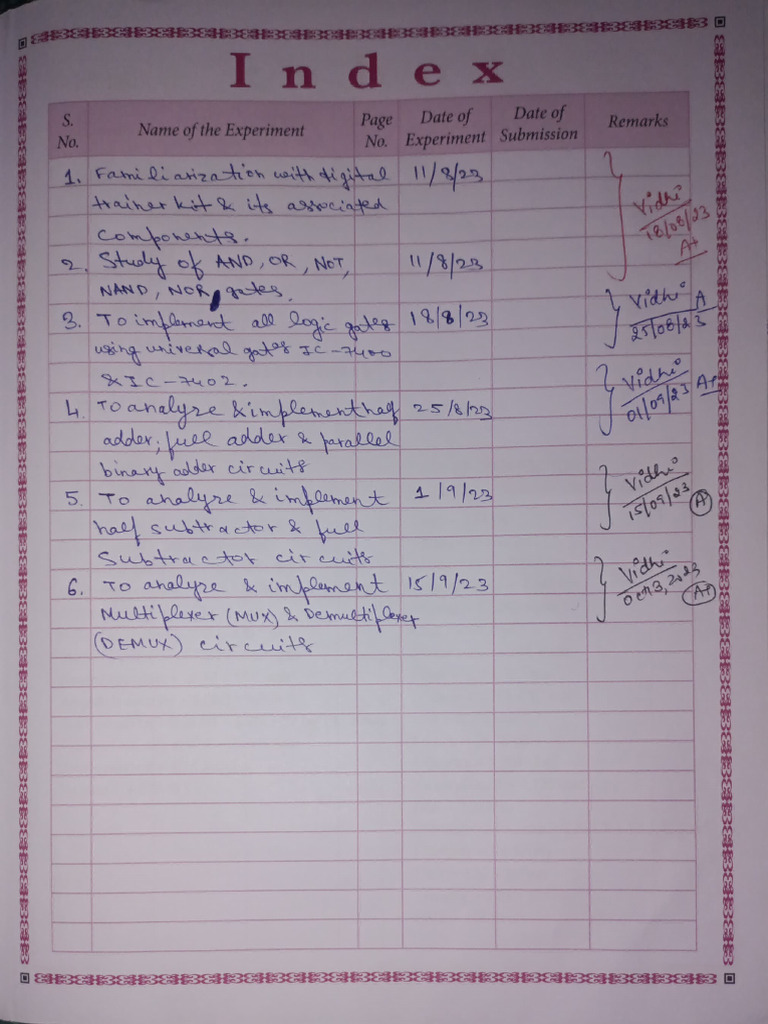 Index
S. No. Name of the Experiment Page No. Date of Experiment Date of Submission Remarks
1. Familiarization with digital 11/8/23
trainer kit & its associated
components.
Vidhi
18/08/23
A+
2. Study of AND, OR, NOT, 11/8/23
NAND, NOR, gates.
Vidhi A
25/08/23
3. To implement all logic gates 18/8/23
using universal gates IC-7400
& IC-7402.
Vidhi
01/09/23 A+
4. To analyze & implement half 25/8/23
adder, full adder & parallel
binary adder circuits
Vidhi
15/09/23 A
5. To analyze & implement 1/9/23
half subtractor & full
subtractor circuits
Vidhi
Oct 3, 2023
A+
6. To analyze & implement 15/9/23
Multiplexer (MUX) & Demultiplexer
(DEMUX) circuits